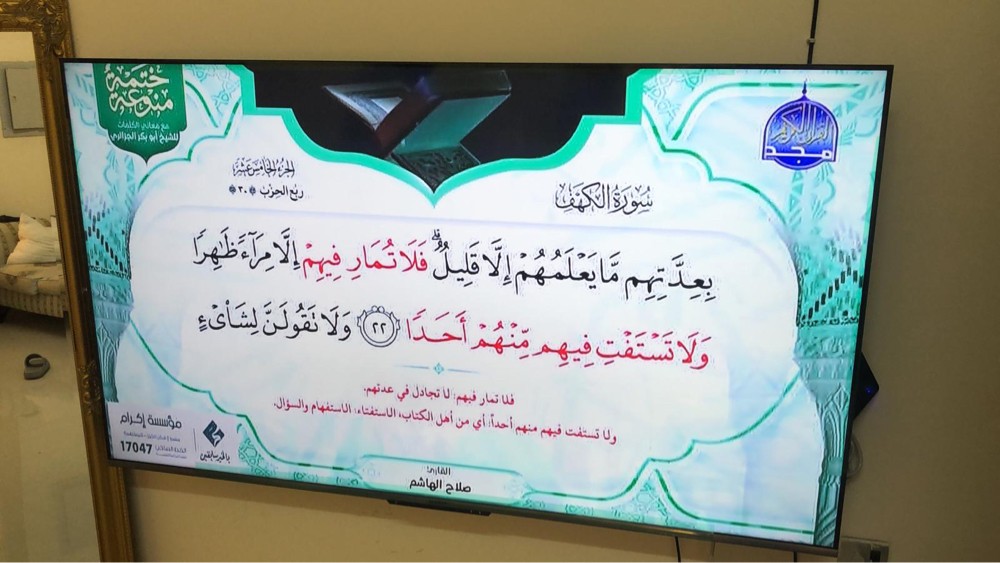 ختمة
منوعة
مع معاني الكلمات
للشيخ أبو بكر الجزائري
القرآن الكريم
مجد
الجزء الخامس عشر
ربع الحزب ٣٠
سُورَةُ الكَهْفِ
بِعِدَّتِهِم مَّا يَعْلَمُهُمْ إِلَّا قَلِيلٌ ۗ فَلَا تُمَارِ فِيهِمْ إِلَّا مِرَآءً ظَٰهِرًا
وَلَا تَسْتَفْتِ فِيهِم مِّنْهُمْ أَحَدًا ٢٢ وَلَا تَقُولَنَّ لِشَا۟ىْءٍ
فلا تمار فيهم: لا تجادل في عدتهم.
ولا تستفت فيهم منهم أحداً: أي من أهل الكتاب، الاستفتاء: الاستفهام والسؤال.
مؤسسة إكرام
17047
بالخير سابقين
القارئ:
صلاح الهاشم